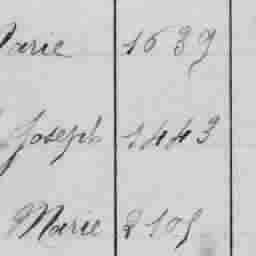 Marie 1639
Joseph 1443
Marie 2105